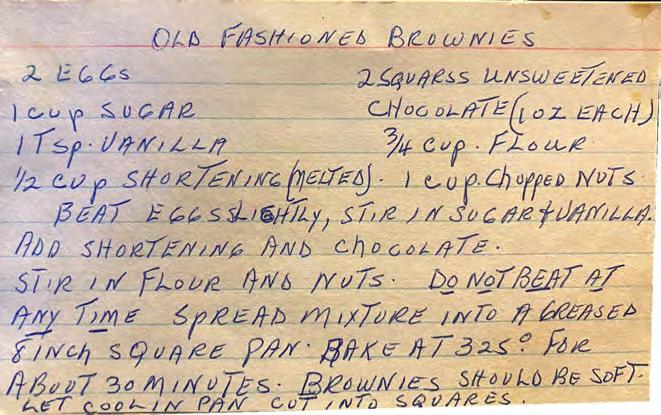 OLD FASHIONED BROWNIES
2 EGGS 2 SQUARSS UNSWEETENED
1 cup SUGAR CHOCOLATE (1 OZ EACH)
1 Tsp. VANILLA 3/4 cup. FLOUR
1/2 cup SHORTENING (MELTED). 1 cup. Chopped NUTS.
BEAT EGGS SLIGHTLY, STIR IN SUGAR & VANILLA.
ADD SHORTENING AND CHOCOLATE.
STIR IN FLOUR AND NUTS. DO NOT BEAT AT
ANY TIME SPREAD MIXTURE INTO A GREASED
8 INCH SQUARE PAN. BAKE AT 325° FOR
ABOUT 30 MINUTES. BROWNIES SHOULD BE SOFT.
LET COOL IN PAN CUT INTO SQUARES.